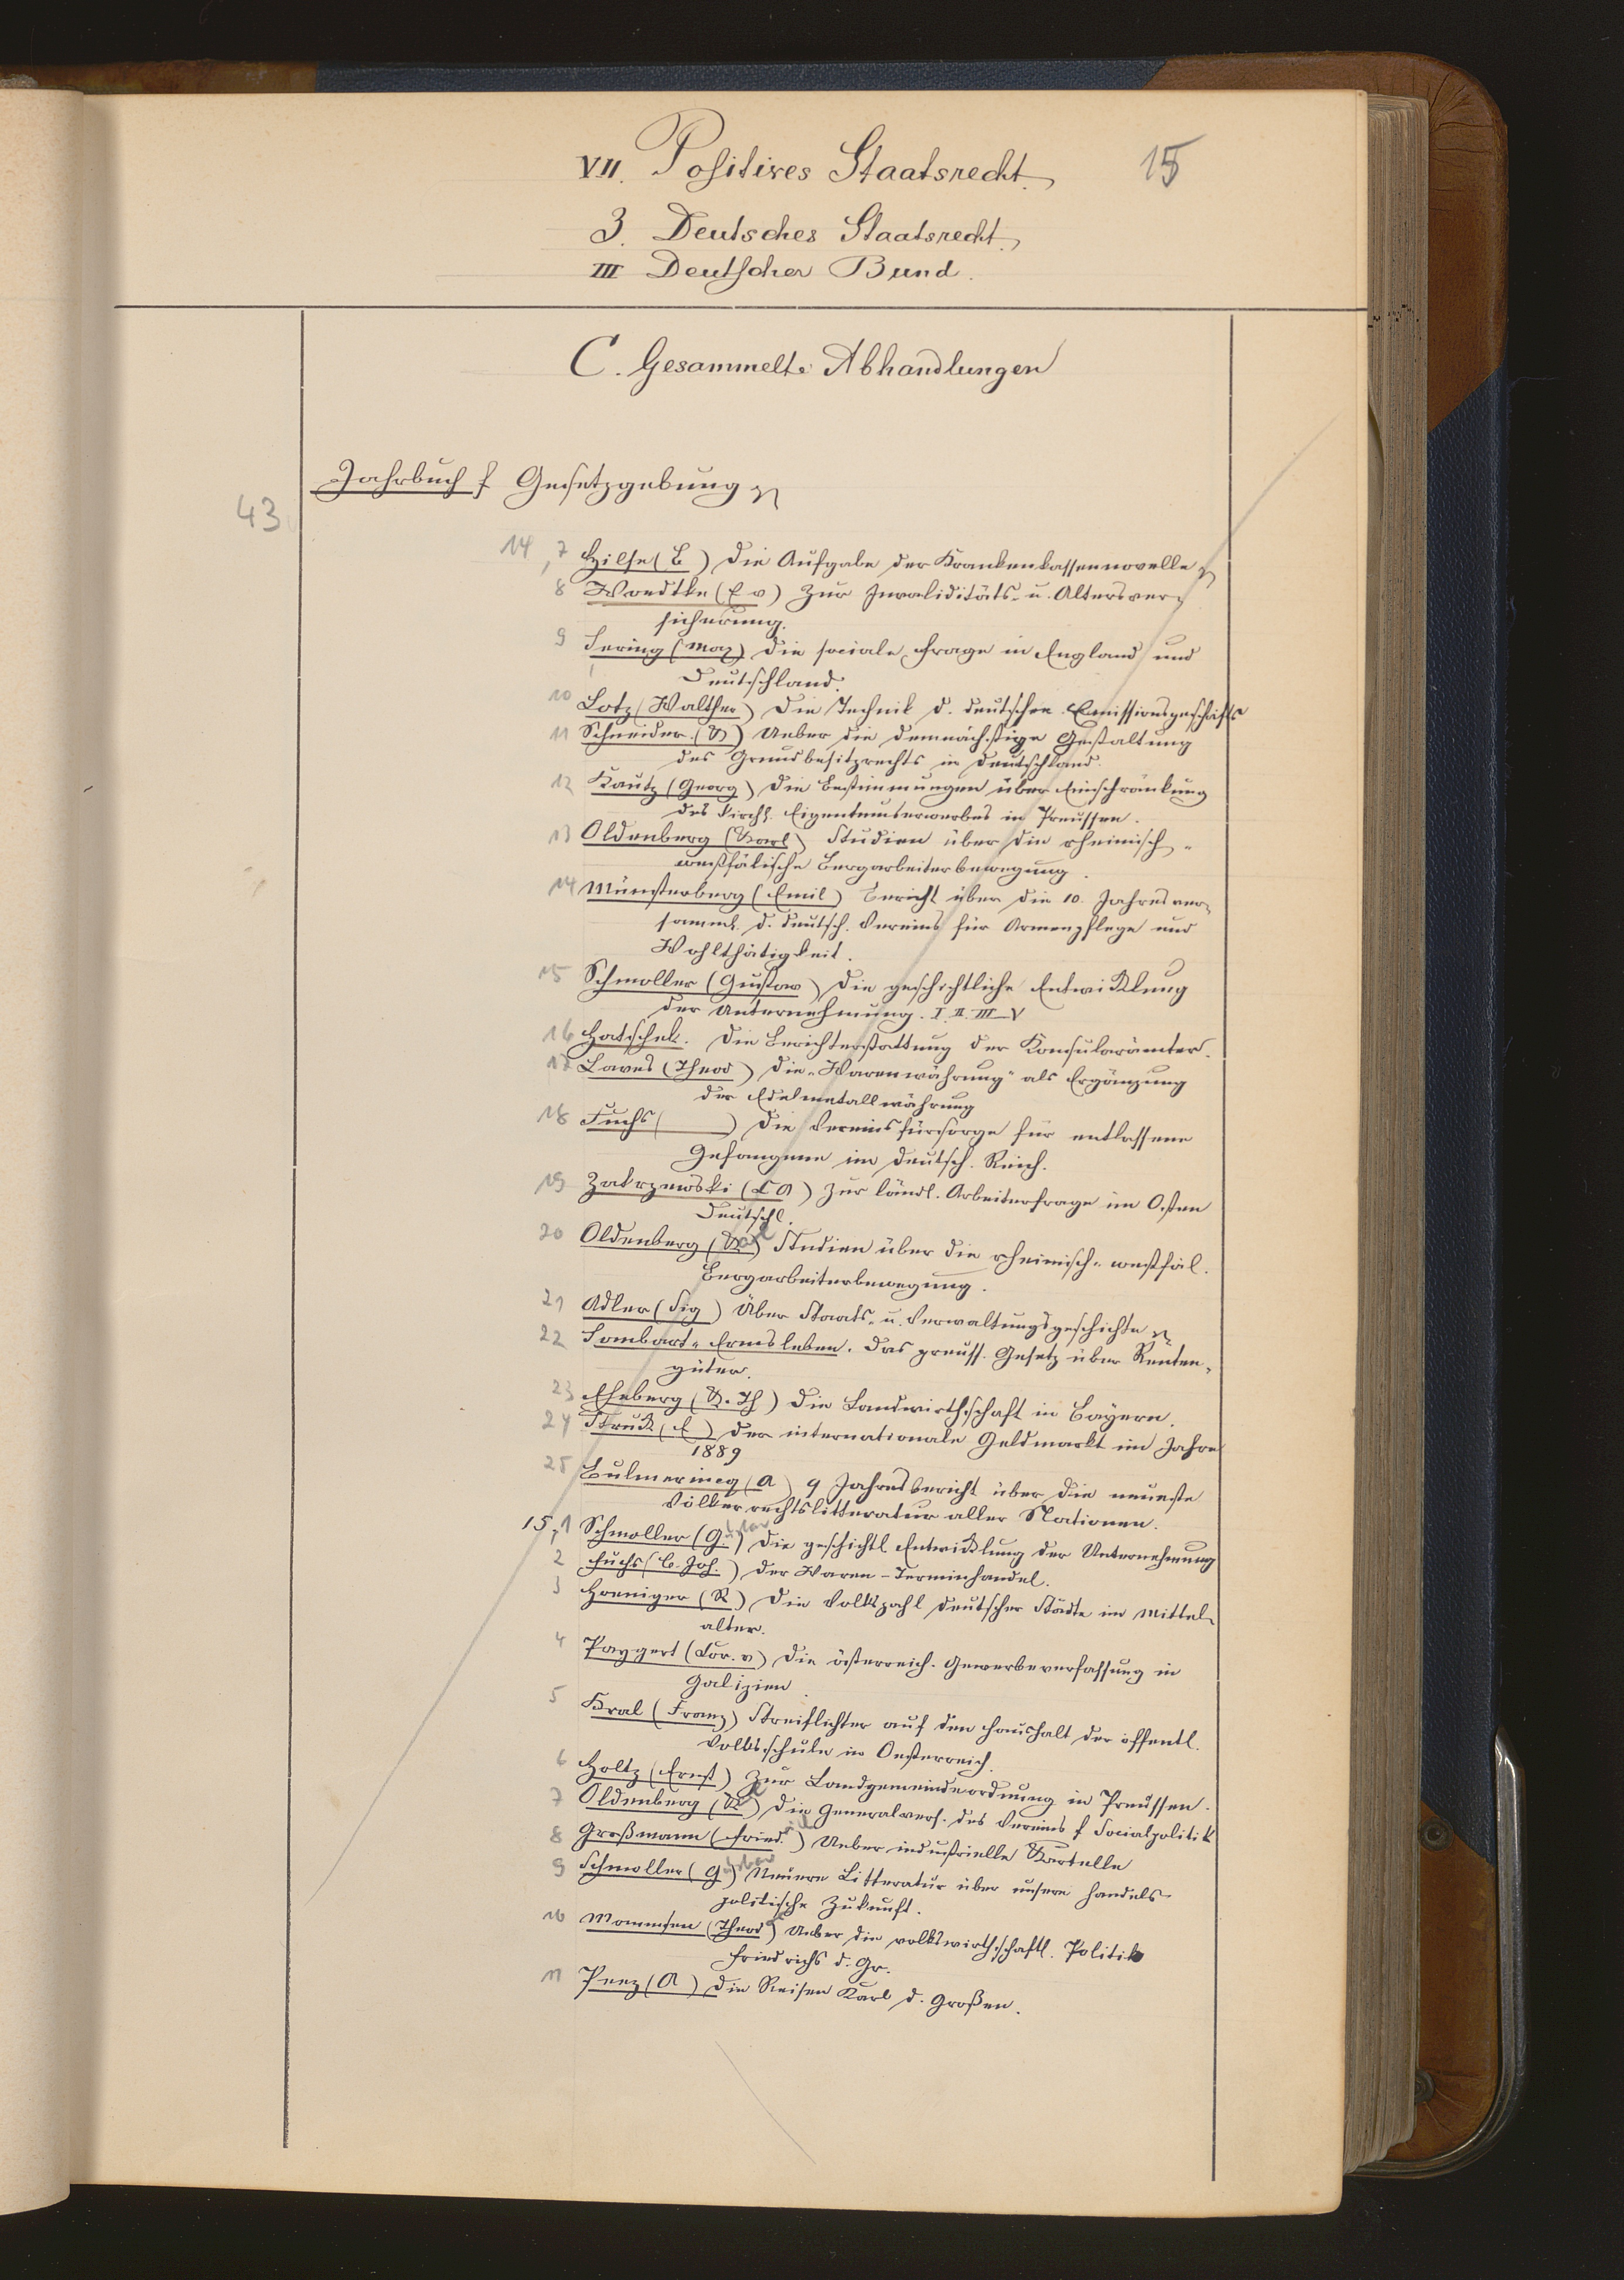 VII. Positives Staatsrecht. 15
3. Deutsches Staatsrecht.
III Deutscher Bund.
C. Gesammelte Abhandlungen
Jahrbuch f Gesetzgebung
43
14, 7 Hilse (B) Die Aufgabe der Krankenkassennovelle
8 Woedtke (E v) Zur Invaliditäts- u. Altersver-
sicherung.
9 Sering (Max) Die sociale Frage in England und
Deutschland.
10 Lotz (Walther) Die Technik d. deutschen Emissionsgeschäfts
11 Schneider (K) Ueber die demnächstige Gestaltung
des Grundbesitzrechts in Deutschland.
12 Kautz (Georg) Die Bestimmungen über Einschränkung
des kirchl. Eigentumserwerbes in Preussen.
13 Oldenberg (Karl) Studien über die rheinisch-
westfälische Bergarbeiterbewegung.
14 Münsterberg (Emil) Bericht über die 10. Jahresver-
samml. d. deutsch. Vereins für Armenpflege und
Wohlthätigkeit.
15 Schmoller (Gustav) Die geschichtliche Entwicklung
der Unternehmung. I. II. III-V
16 Hatschek. Die Berichterstattung der Konsularämter.
17 Laves (Theod) Die „Warenwährung" als Ergänzung
der Edelmetallwährung
18 Fuchs ( ) Die Vereinsfürsorge für entlassene
Gefangene im deutsch. Reich.
19 Zakrzewski (C A) Zur ländl. Arbeiterfrage im Osten
Deutschl.
20 Oldenberg (Karl) Studien über die rheinisch-westfäl.
Bergarbeiterbewegung.
21 Adler (Sig) Über Staats- u. Verwaltungsgeschichte
22 Sombart-Ermsleben. Das preuss. Gesetz über Renten-
güter.
23 Eheberg (K. Th) Die Landwirthschaft in Bayern.
24 Struck (E) Der internationale Geldmarkt im Jahre
1889
25 Bulmerincq (A) 9 Jahresbericht über die neueste
Völkerrechtslitteratur aller Nationen.
15, 1 Schmoller (Gustav) Die geschichtl Entwicklung der Unternehmung
2 Fuchs (C. Joh.) Der Waren-Terminhandel.
3 Hoeniger (R) Die Volkszahl deutscher Städte im Mittel-
alter.
4 Paygert (Cor. v) Die österreich. Gewerbeverfassung in
Galizien.
5 Kral (Franz) Streiflichter auf den Haushalt der öffentl.
Volksschule in Oesterreich.
6 Holtz (Ernst) Zur Landgemeindeordnung in Preussen.
7 Oldenberg (K) Die Generalvers. des Vereins f Socialpolitik
8 Großmann (Friedrich) Ueber industrielle Kartelle
9 Schmoller (Gustav) Neuere Litteratur über unsere handels-
politische Zukunft.
10 Mommsen (Theod) Ueber die volkswirthschaftl. Politik
Friedrichs d. Gr.
11 Peez (A) Die Reisen Karl d. Großen.